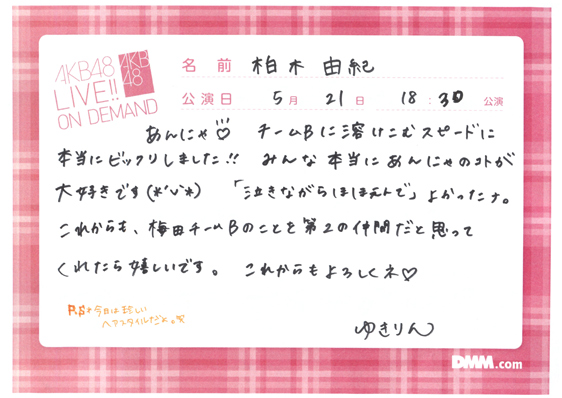 AKB48
LIVE!!
ON DEMAND
AKB
48
名前 柏木 由紀
公演日 5月 21日 18:30 公演
あんにゃ♡ チームBに溶けこむスピードに
本当にビックリしました!! みんな本当にあんにゃのコトが
大好きです(*'∨'*) 「泣きながらほほえんで」よかったナ。
これからも、梅田チームBのことを第2の仲間だと思って
くれたら嬉しいです。 これからもよろしくネ♡
P.S 今日は珍しい
ヘアスタイルだよ。笑
ゆきりん
DMM.com